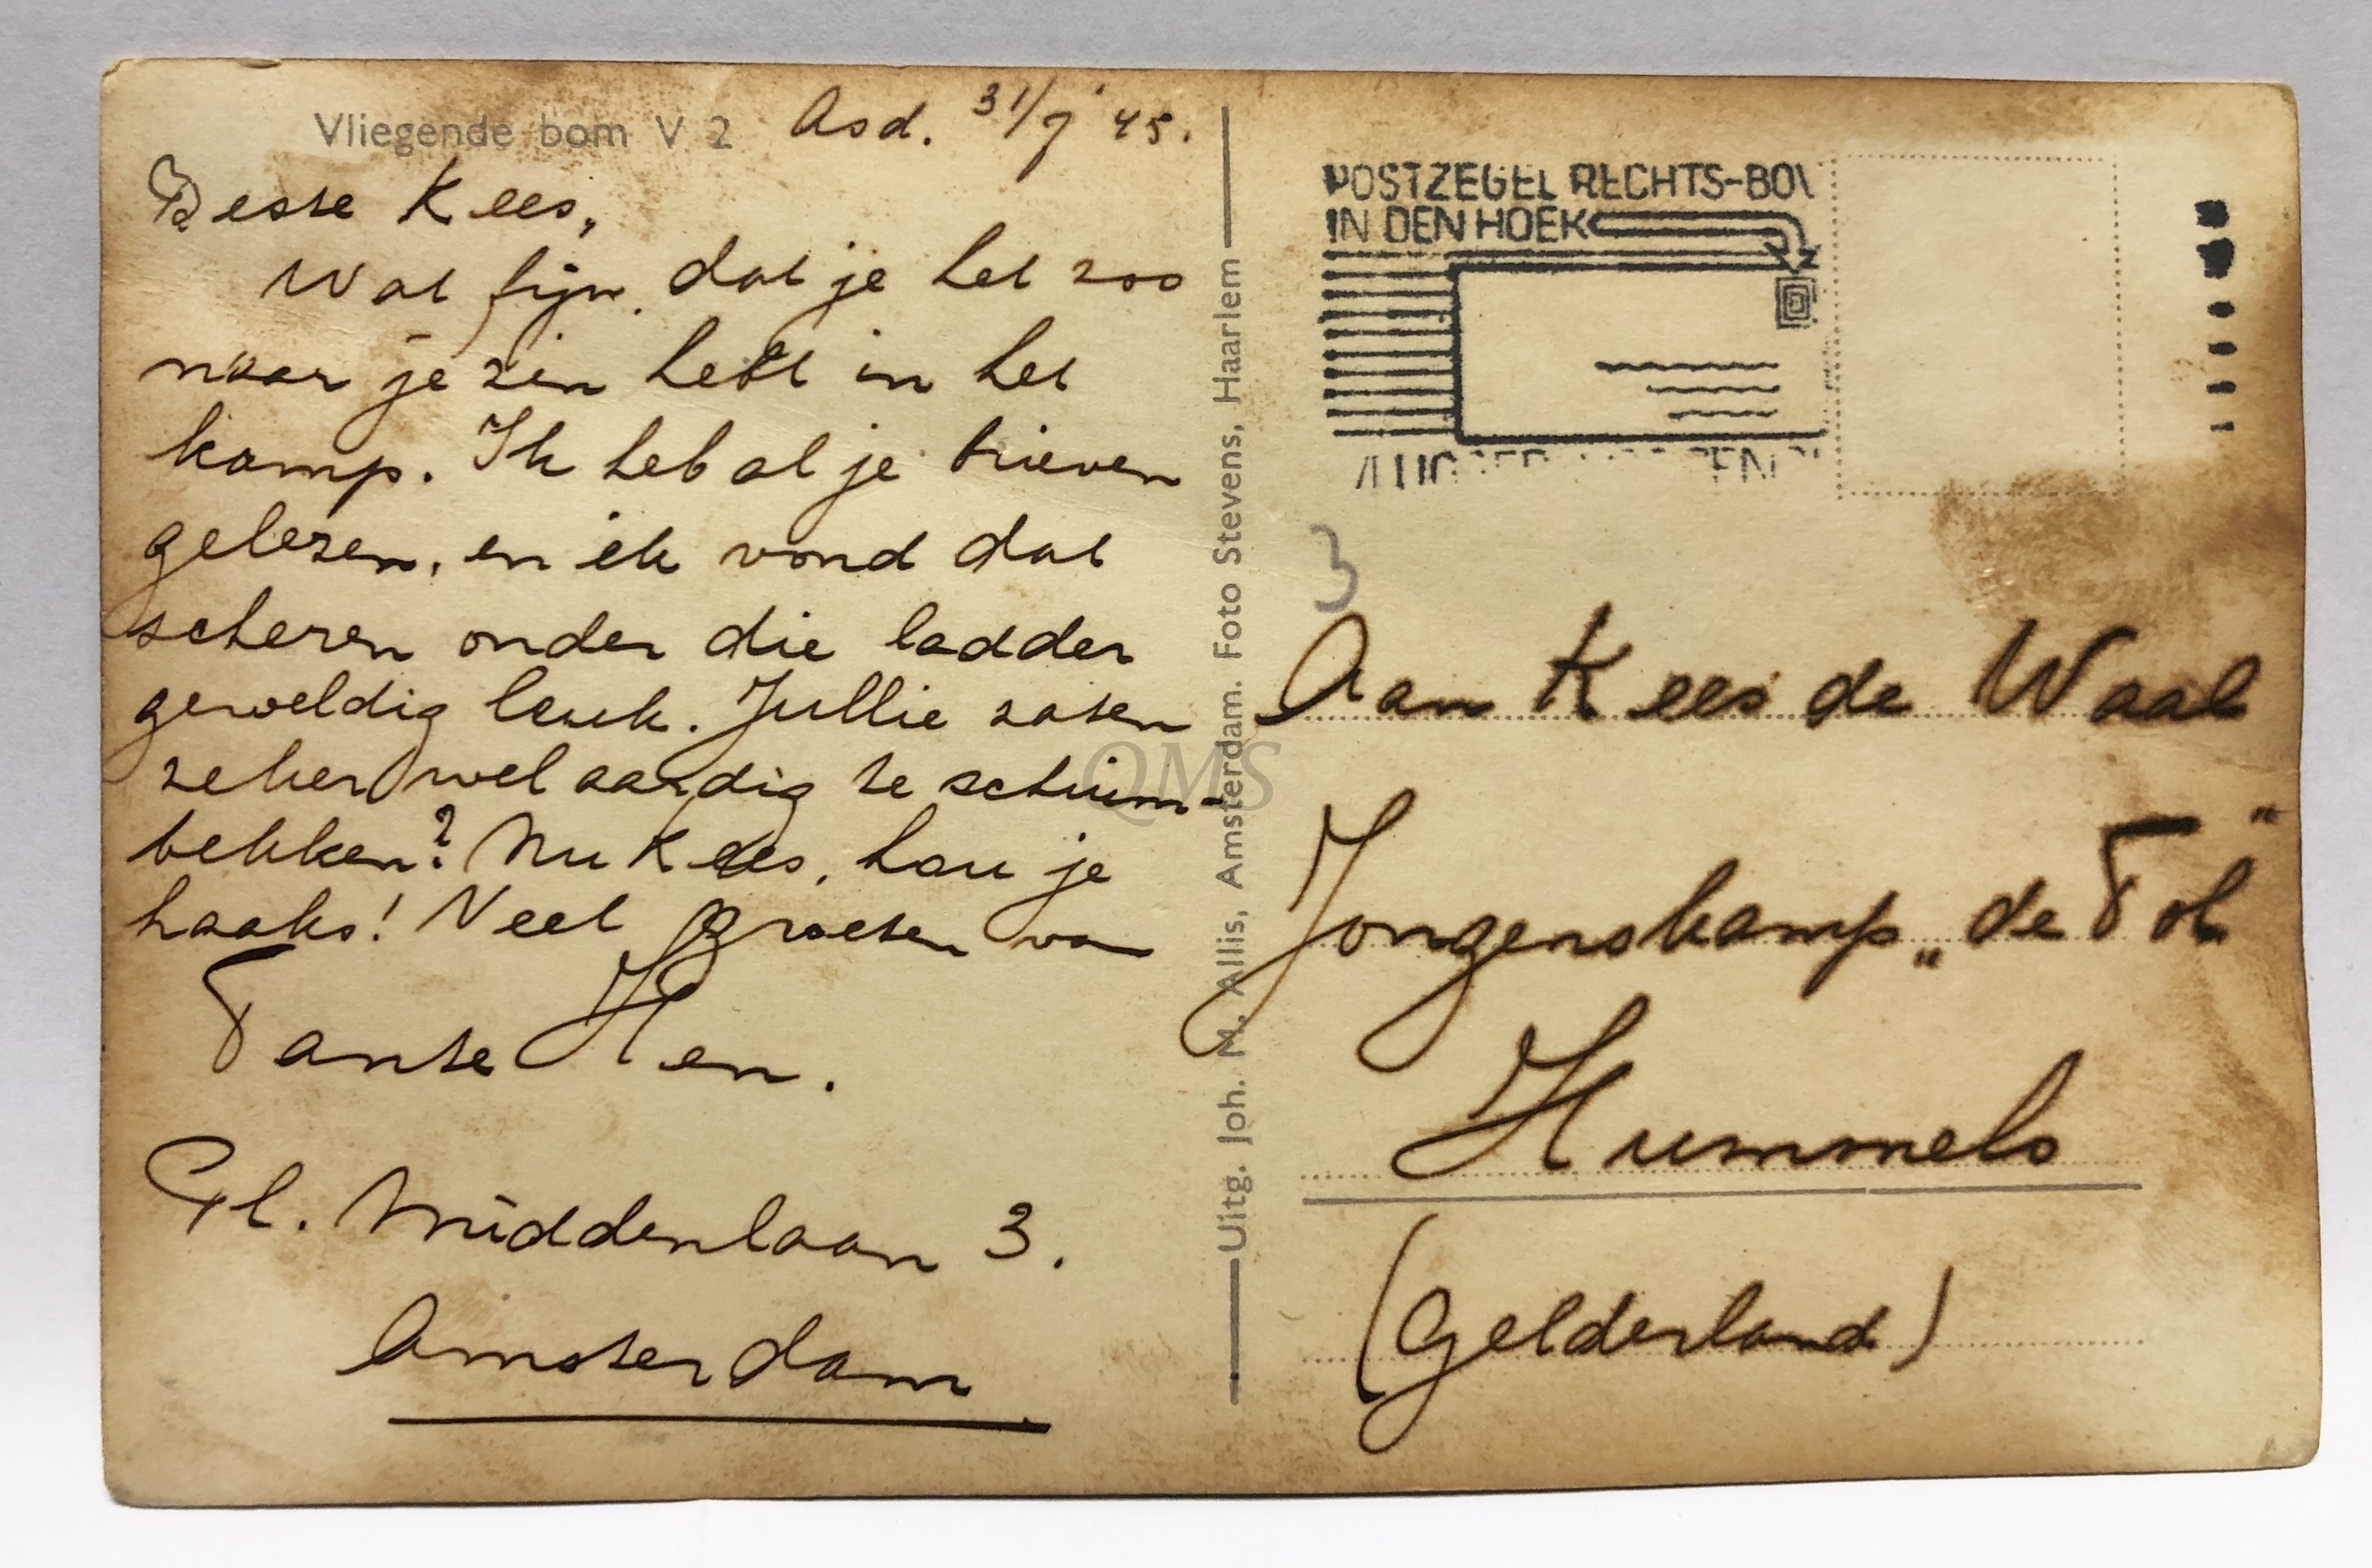 Vliegende bom V 2
Asd. 31/7 '45.
Beste Kees,
Wat fijn, dat je het zoo
naar je zin hebt in het
kamp. Ik heb al je brieven
gelezen, en ik vond dat
scheren onder die ladder
geweldig leuk. Jullie zaten
zeker wel aardig te schuim-
bekken? Nu Kees, hou je
haaks! Veel groeten van
Tante Hen.
Pl. Middenlaan 3.
Amsterdam.
Uitg. Joh. M. Allis, Amsterdam. Foto Stevens, Haarlem
POSTZEGEL RECHTS-BOV
IN DEN HOEK
3
Aan Kees de Waal
Jongenskamp „de Tol"
Hummelo
(Gelderland)
QMS